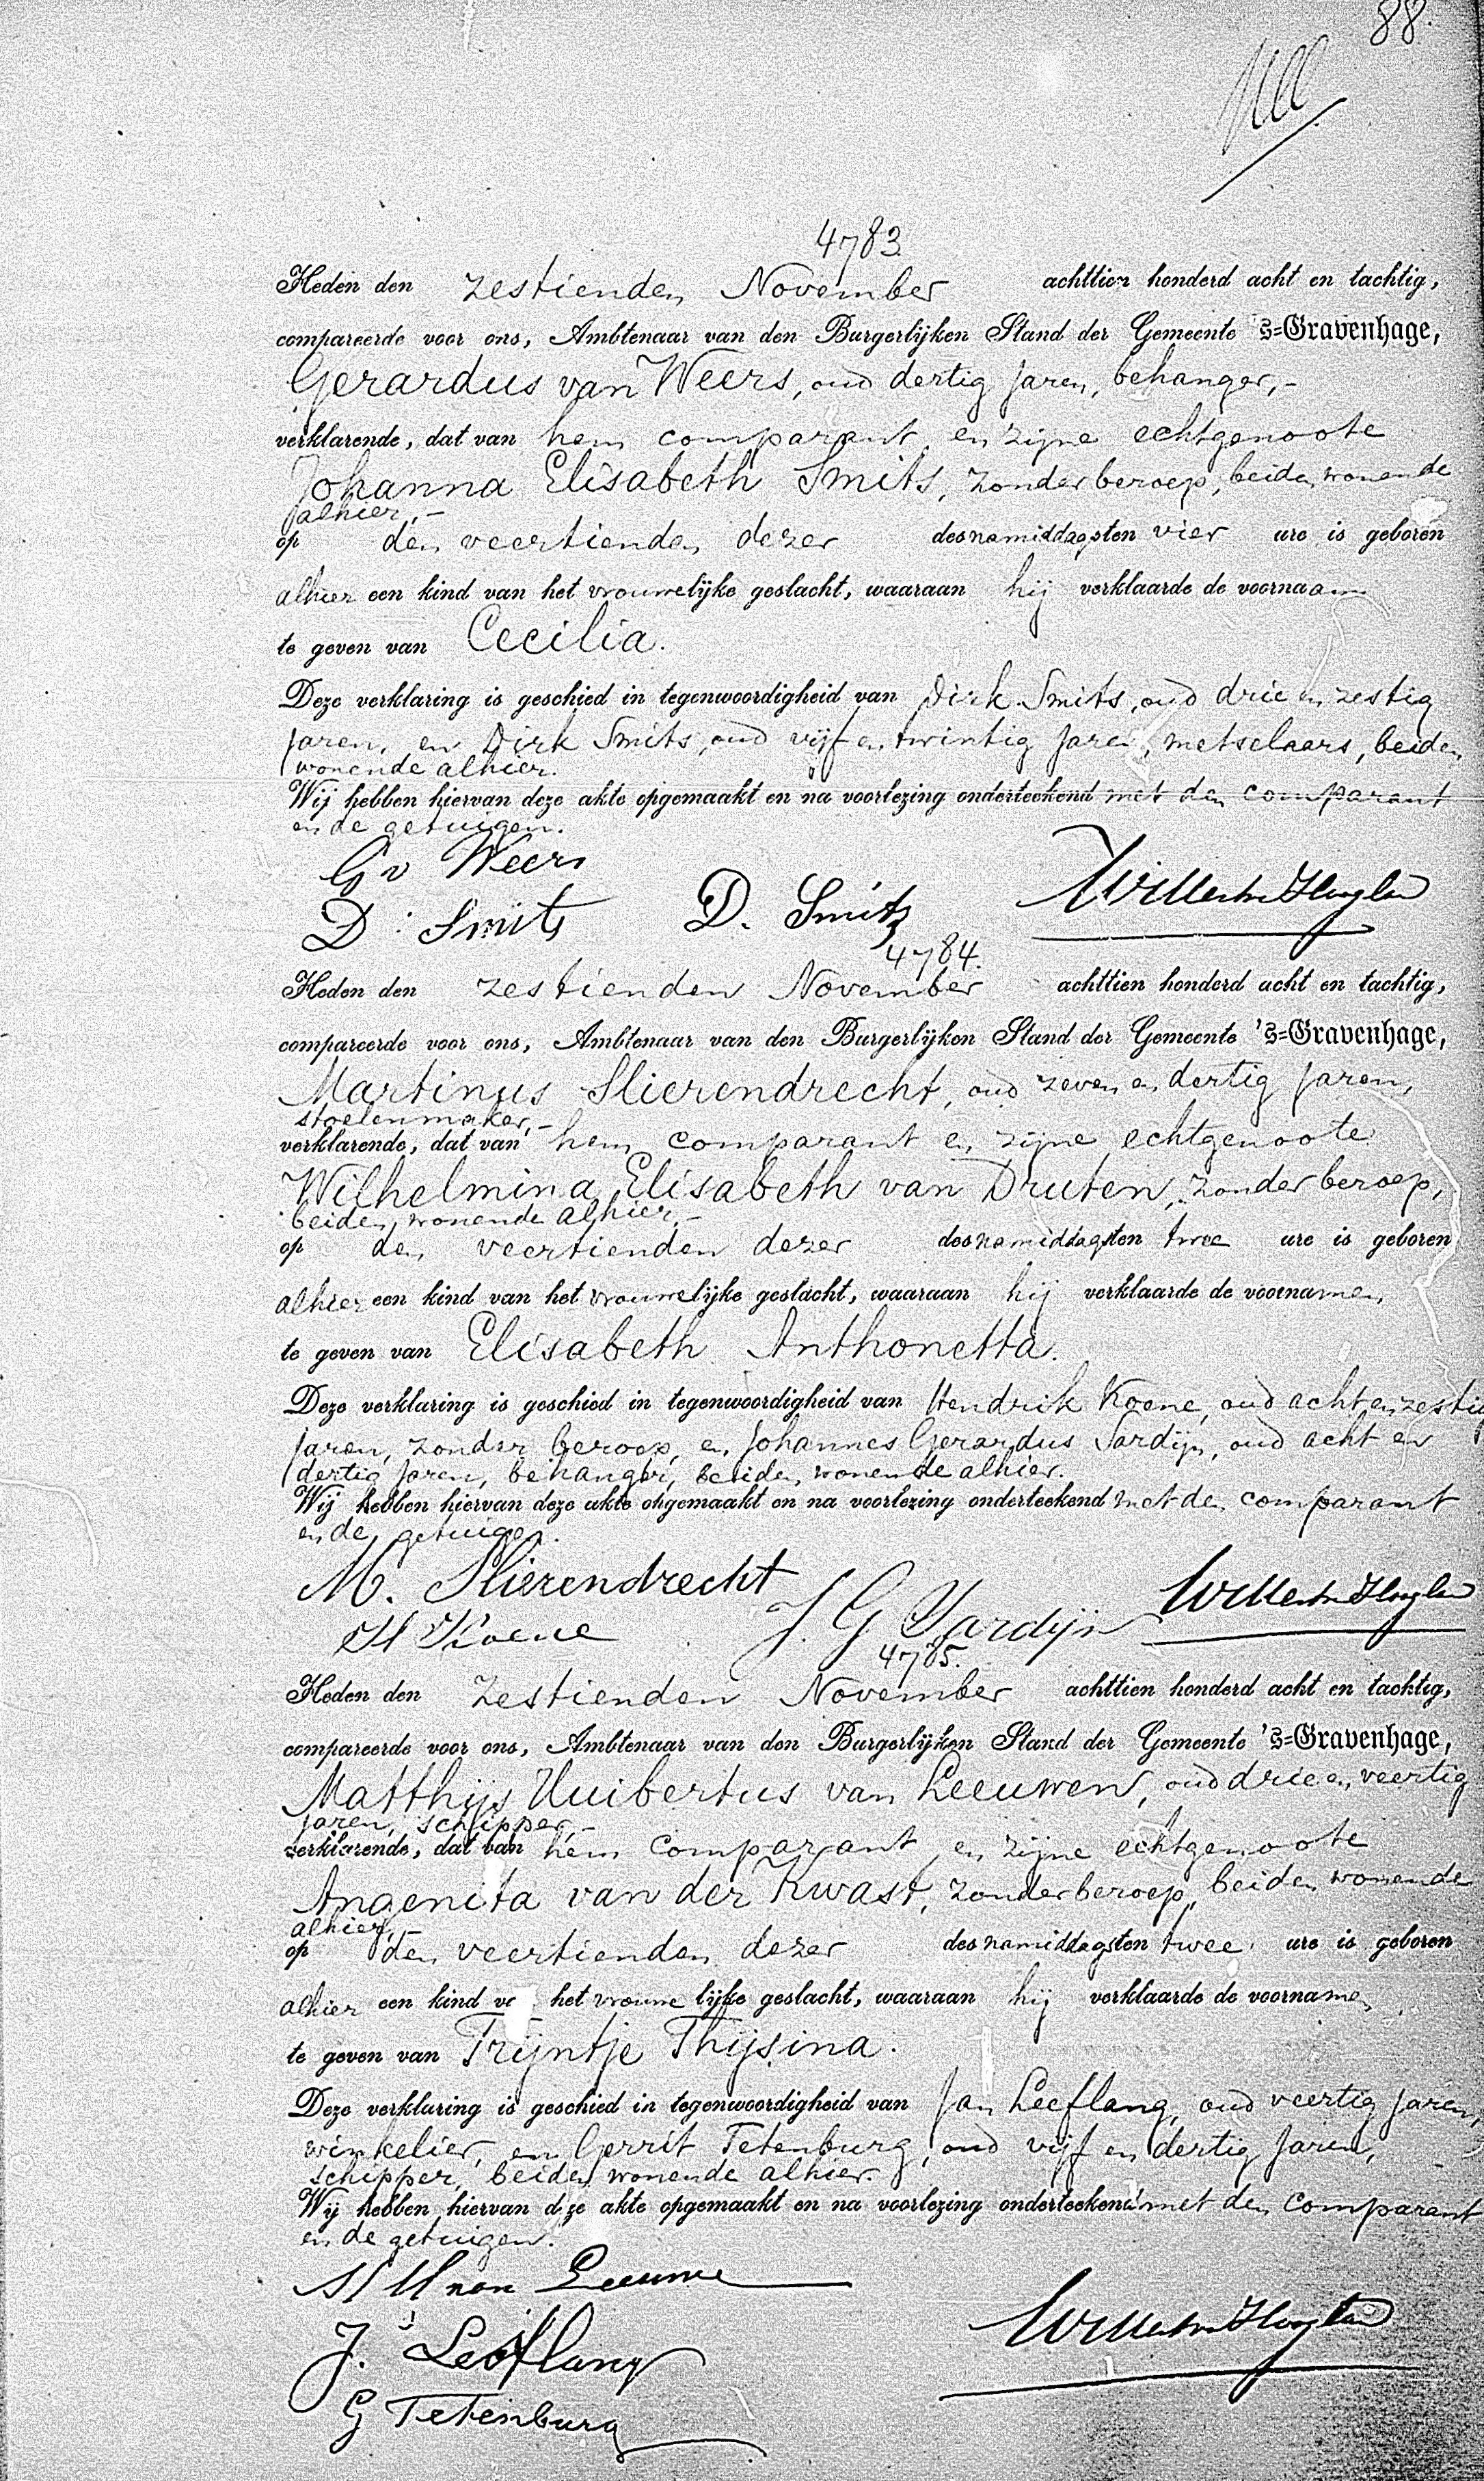 88.
4783.
Heden den zestienden November achttien honderd acht en tachtig,
compareerde voor ons, Ambtenaar van den Burgerlijken Stand der Gemeente 's=Gravenhage,
Gerardus van Weers, oud dertig jaren, behanger,-
verklarende, dat van hem comparant en zijne echtgenoote
Johanna Elisabeth Smits, zonder beroep, beiden wonende
alhier,-
op den veertienden dezer des namiddags ten vier ure is geboren
alhier een kind van het vrouwelijke geslacht, waaraan hij verklaarde de voornaam
te geven van Cecilia.
Deze verklaring is geschied in tegenwoordigheid van Dirk Smits, oud drie en zestig
jaren, en Dirk Smits, oud vijf en twintig jaren, metselaars, beiden
wonende alhier.
Wij hebben hiervan deze akte opgemaakt en na voorlezing onderteekend met den comparant
en de getuigen.
G v Weers
D. Smits D. Smits
4784.
Heden den zestienden November achttien honderd acht en tachtig,
compareerde voor ons, Ambtenaar van den Burgerlijken Stand der Gemeente 's=Gravenhage,
Martinus Slierendrecht, oud zeven en dertig jaren,
stoelenmaker,-
verklarende, dat van hem comparant en zijne echtgenoote
Wilhelmina Elisabeth van Druten, zonder beroep,
beiden wonende alhier,-
op den veertienden dezer des namiddags ten twee ure is geboren
alhier een kind van het vrouwelijke geslacht, waaraan hij verklaarde de voornamen
te geven van Elisabeth Anthonetta.
Deze verklaring is geschied in tegenwoordigheid van Hendrik Koene, oud acht en zestig
jaren, zonder beroep, en Johannes Gerardus Sardijn, oud acht en
dertig jaren, behanger, beiden wonende alhier.
Wij hebben hiervan deze akte opgemaakt en na voorlezing onderteekend met den comparant
en de getuigen.
M. Slierendrecht
H Koene J. G Sardijn
4785.
Heden den zestienden November achttien honderd acht en tachtig,
compareerde voor ons, Ambtenaar van den Burgerlijken Stand der Gemeente 's=Gravenhage,
Matthijs Huibertus van Leeuwen, oud drie en veertig
jaren, schipper,-
verklarende, dat van hem comparant en zijne echtgenoote
Angenita van der Kwast, zonder beroep, beiden wonende
alhier,-
op den veertienden dezer des namiddags ten twee ure is geboren
alhier een kind van het vrouwelijke geslacht, waaraan hij verklaarde de voornamen
te geven van Trijntje Thijsina.
Deze verklaring is geschied in tegenwoordigheid van Jan Leeflang, oud veertig jaren,
winkelier, en Gerrit Tetenburg, oud vijf en dertig jaren,
schipper, beiden wonende alhier.
Wij hebben hiervan deze akte opgemaakt en na voorlezing onderteekend met den comparant
en de getuigen.
M H van Leeuwe
J. Leeflang
G Tetenburg